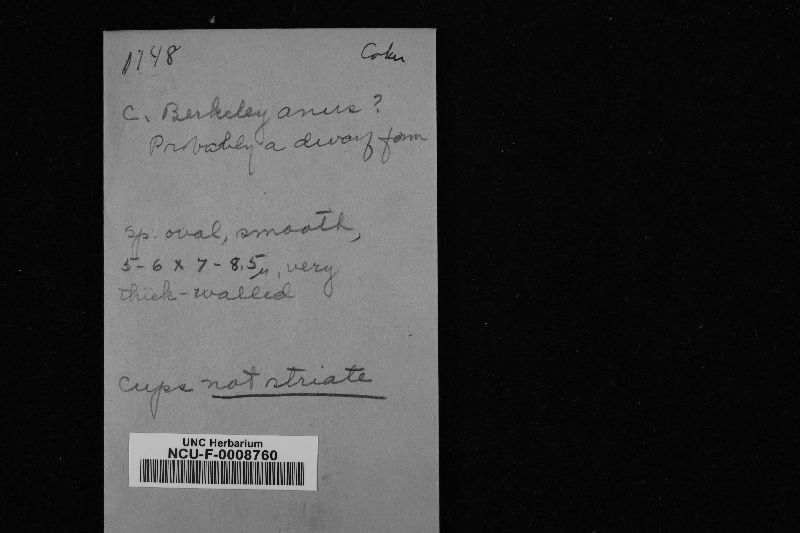 1748 Coker
C. Berkeleyanus?
Probably a dwarf form
sp. oval, smooth,
5-6 x 7-8.5µ, very
thick-walled
Cups not striate
UNC Herbarium
NCU-F-0008760